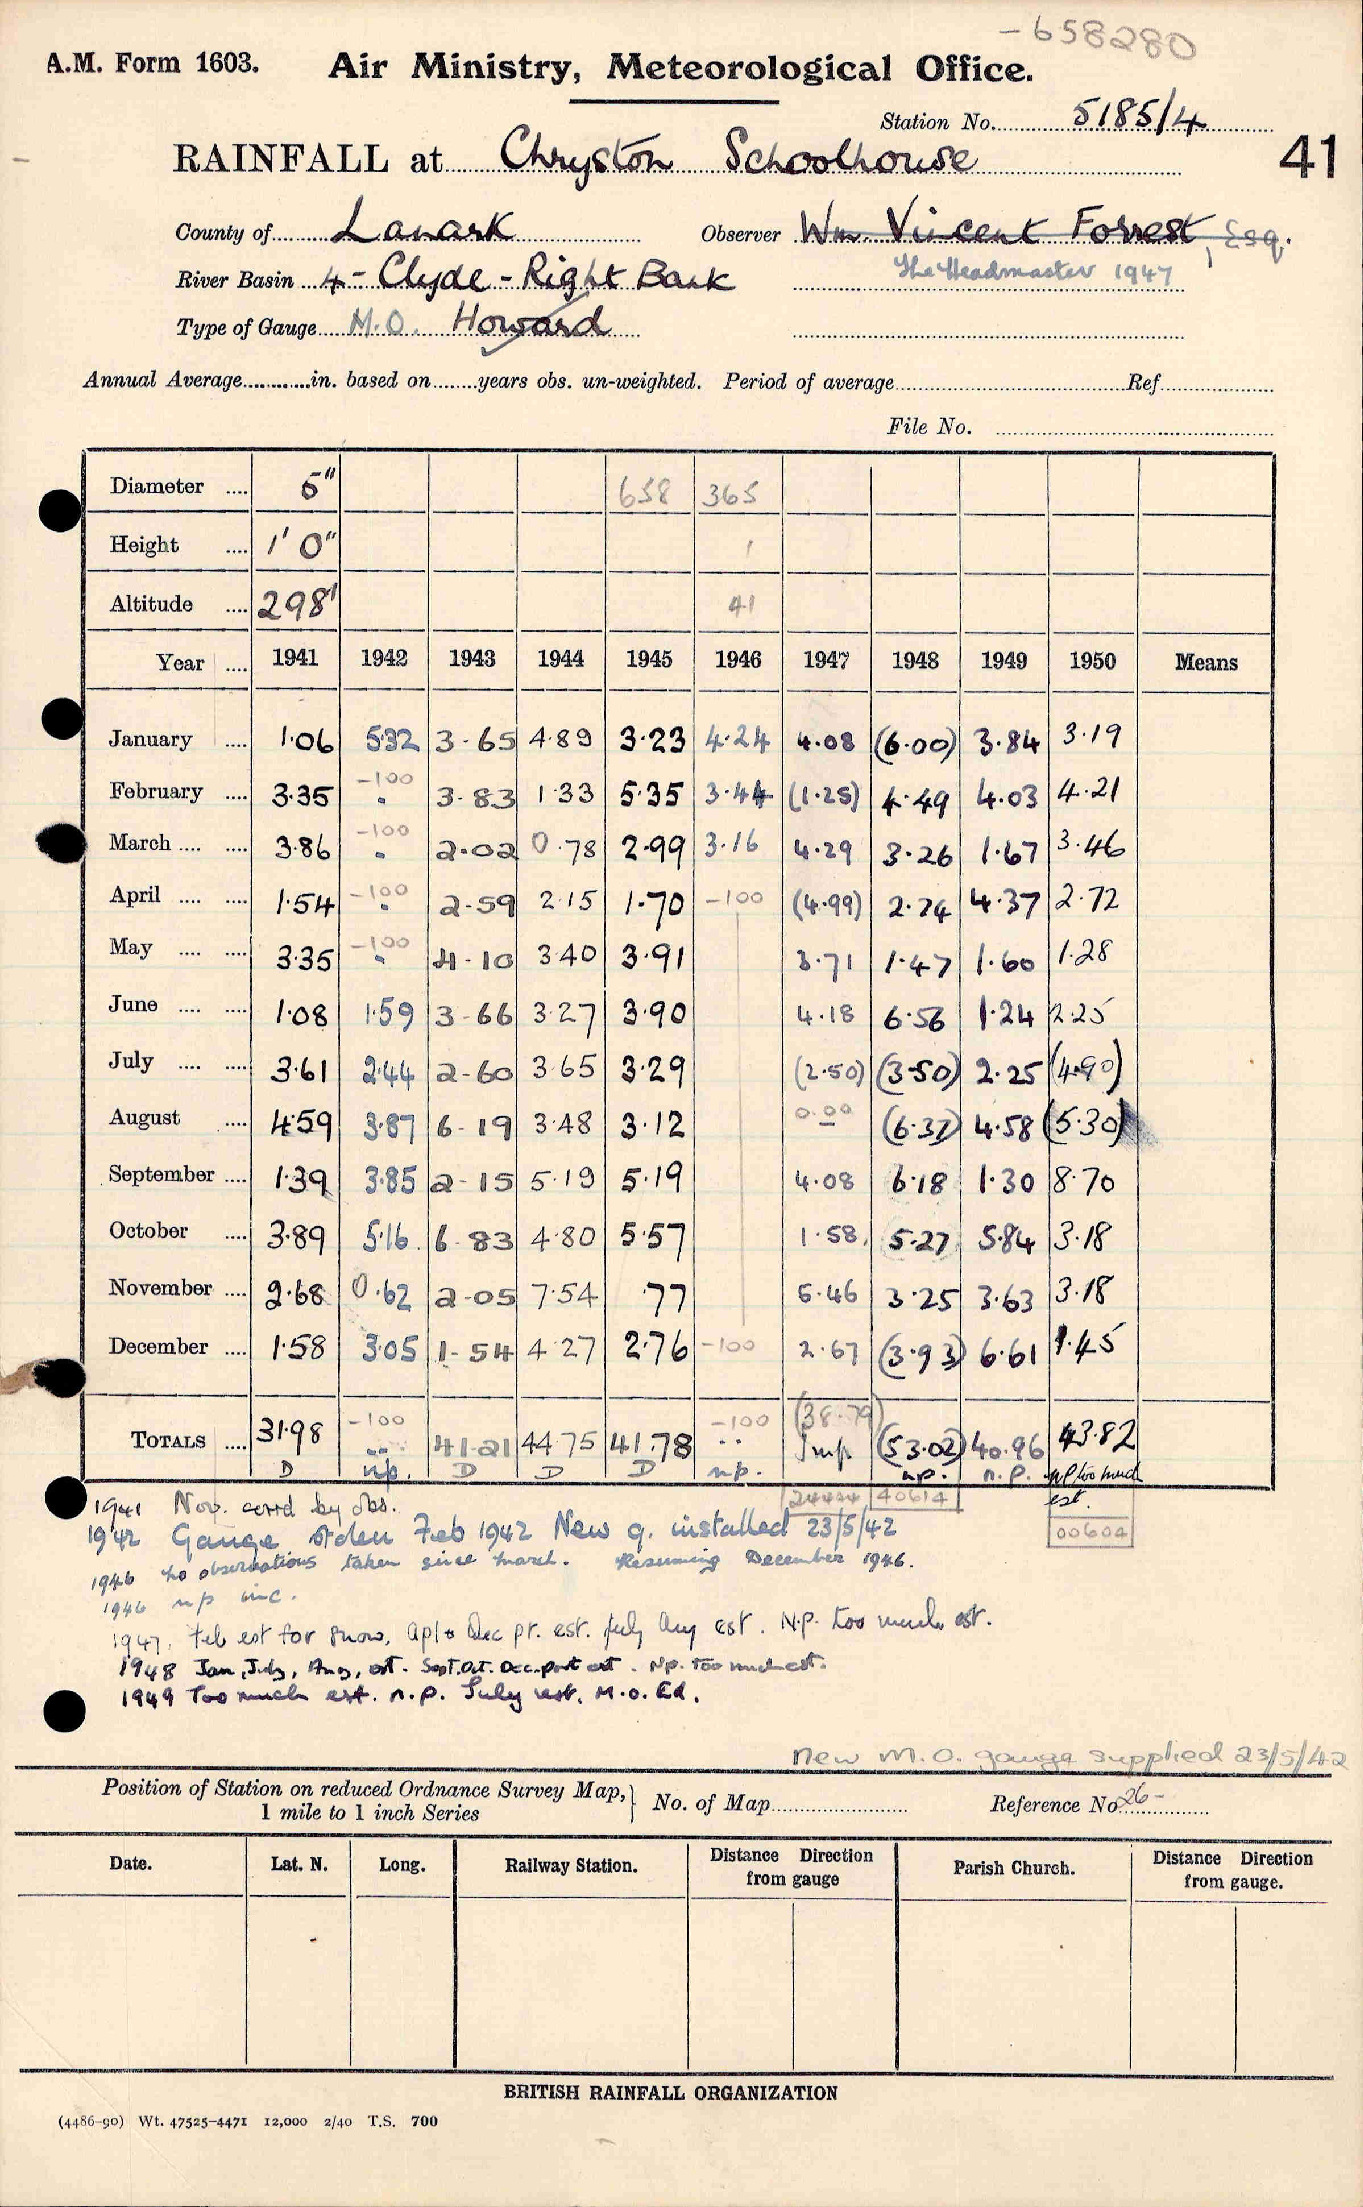 -658280
A.M. Form 1603. Air Ministry, Meteorological Office.
Station No. 5185/4
RAINFALL at Chryston Schoolhouse 41
County of Lanark Observer Wm. Vincent Forrest, Esq.
The Headmaster 1947
River Basin 4 - Clyde - Right Bank
Type of Gauge M.O. Howard
Annual Average in. based on years obs. un-weighted. Period of average Ref
File No.
Diameter .... 5" 658 365
Height .... 1' 0" 1
Altitude .... 298' 41
Year .... 1941 1942 1943 1944 1945 1946 1947 1948 1949 1950 Means
January .... 1.06 5.32 3-65 4.89 3.23 4.24 4.08 (6.00) 3.84 3.19
February .... 3.35 -100 3-83 1.33 5.35 3.44 (1.25) 4.49 4.03 4.21
March .... .... 3.86 -100 2.02 0.78 2.99 3.16 4.29 3.26 1.67 3.46
April .... .... 1.54 -100 2-59 2.15 1.70 -100 (4.99) 2.74 4.37 2.72
May .... .... 3.35 -100 4-10 3.40 3.91 3.71 1.47 1.60 1.28
June .... .... 1.08 1.59 3-66 3.27 3.90 4.18 6.56 1.24 2.25
July .... .... 3.61 2.44 2-60 3.65 3.29 (2.50) (3.50) 2.25 (4.90)
August .... 4.59 3.87 6-19 3.48 3.12 0.00 (6.37) 4.58 (5.30)
September .... 1.39 3.85 2-15 5.19 5.19 4.08 6.18 1.30 8.70
October .... 3.89 5.16 6-83 4.80 5.57 1.58 5.27 5.84 3.18
November .... 2.68 0.62 2-05 7.54 .77 5.46 3.25 3.63 3.18
December .... 1.58 3.05 1-54 4.27 2.76 -100 2.67 (3.93) 6.61 1.45
TOTALS .... 31.98 -100 41-21 44.75 41.78 -100 (38.79) (53.02) 40.96 43.82
D np. D D D np. Imp np. n.p. np too much est.
24424 40614 00604
1941 Nov. corrd by obs.
1942 Gauge stolen Feb 1942 New g. installed 23/5/42
1946 No observations taken since March. Resuming December 1946.
1946 np inc.
1947. Feb est for snow, Apl & Dec pt. est. July Aug est. N.P. too much est.
1948 Jan, July, Aug, est. Sept. Oct. Dec. part est. Np. Too much est.
1949 Too much est. n.p. July est. M.O. Ed.
New M.O. gauge supplied 23/5/42
Position of Station on reduced Ordnance Survey Map, 1 mile to 1 inch Series } No. of Map Reference No 26-
Date. Lat. N. Long. Railway Station. Distance Direction from gauge Parish Church. Distance Direction from gauge.
BRITISH RAINFALL ORGANIZATION
(4486-90) Wt. 47525-4471 12,000 2/40 T.S. 700